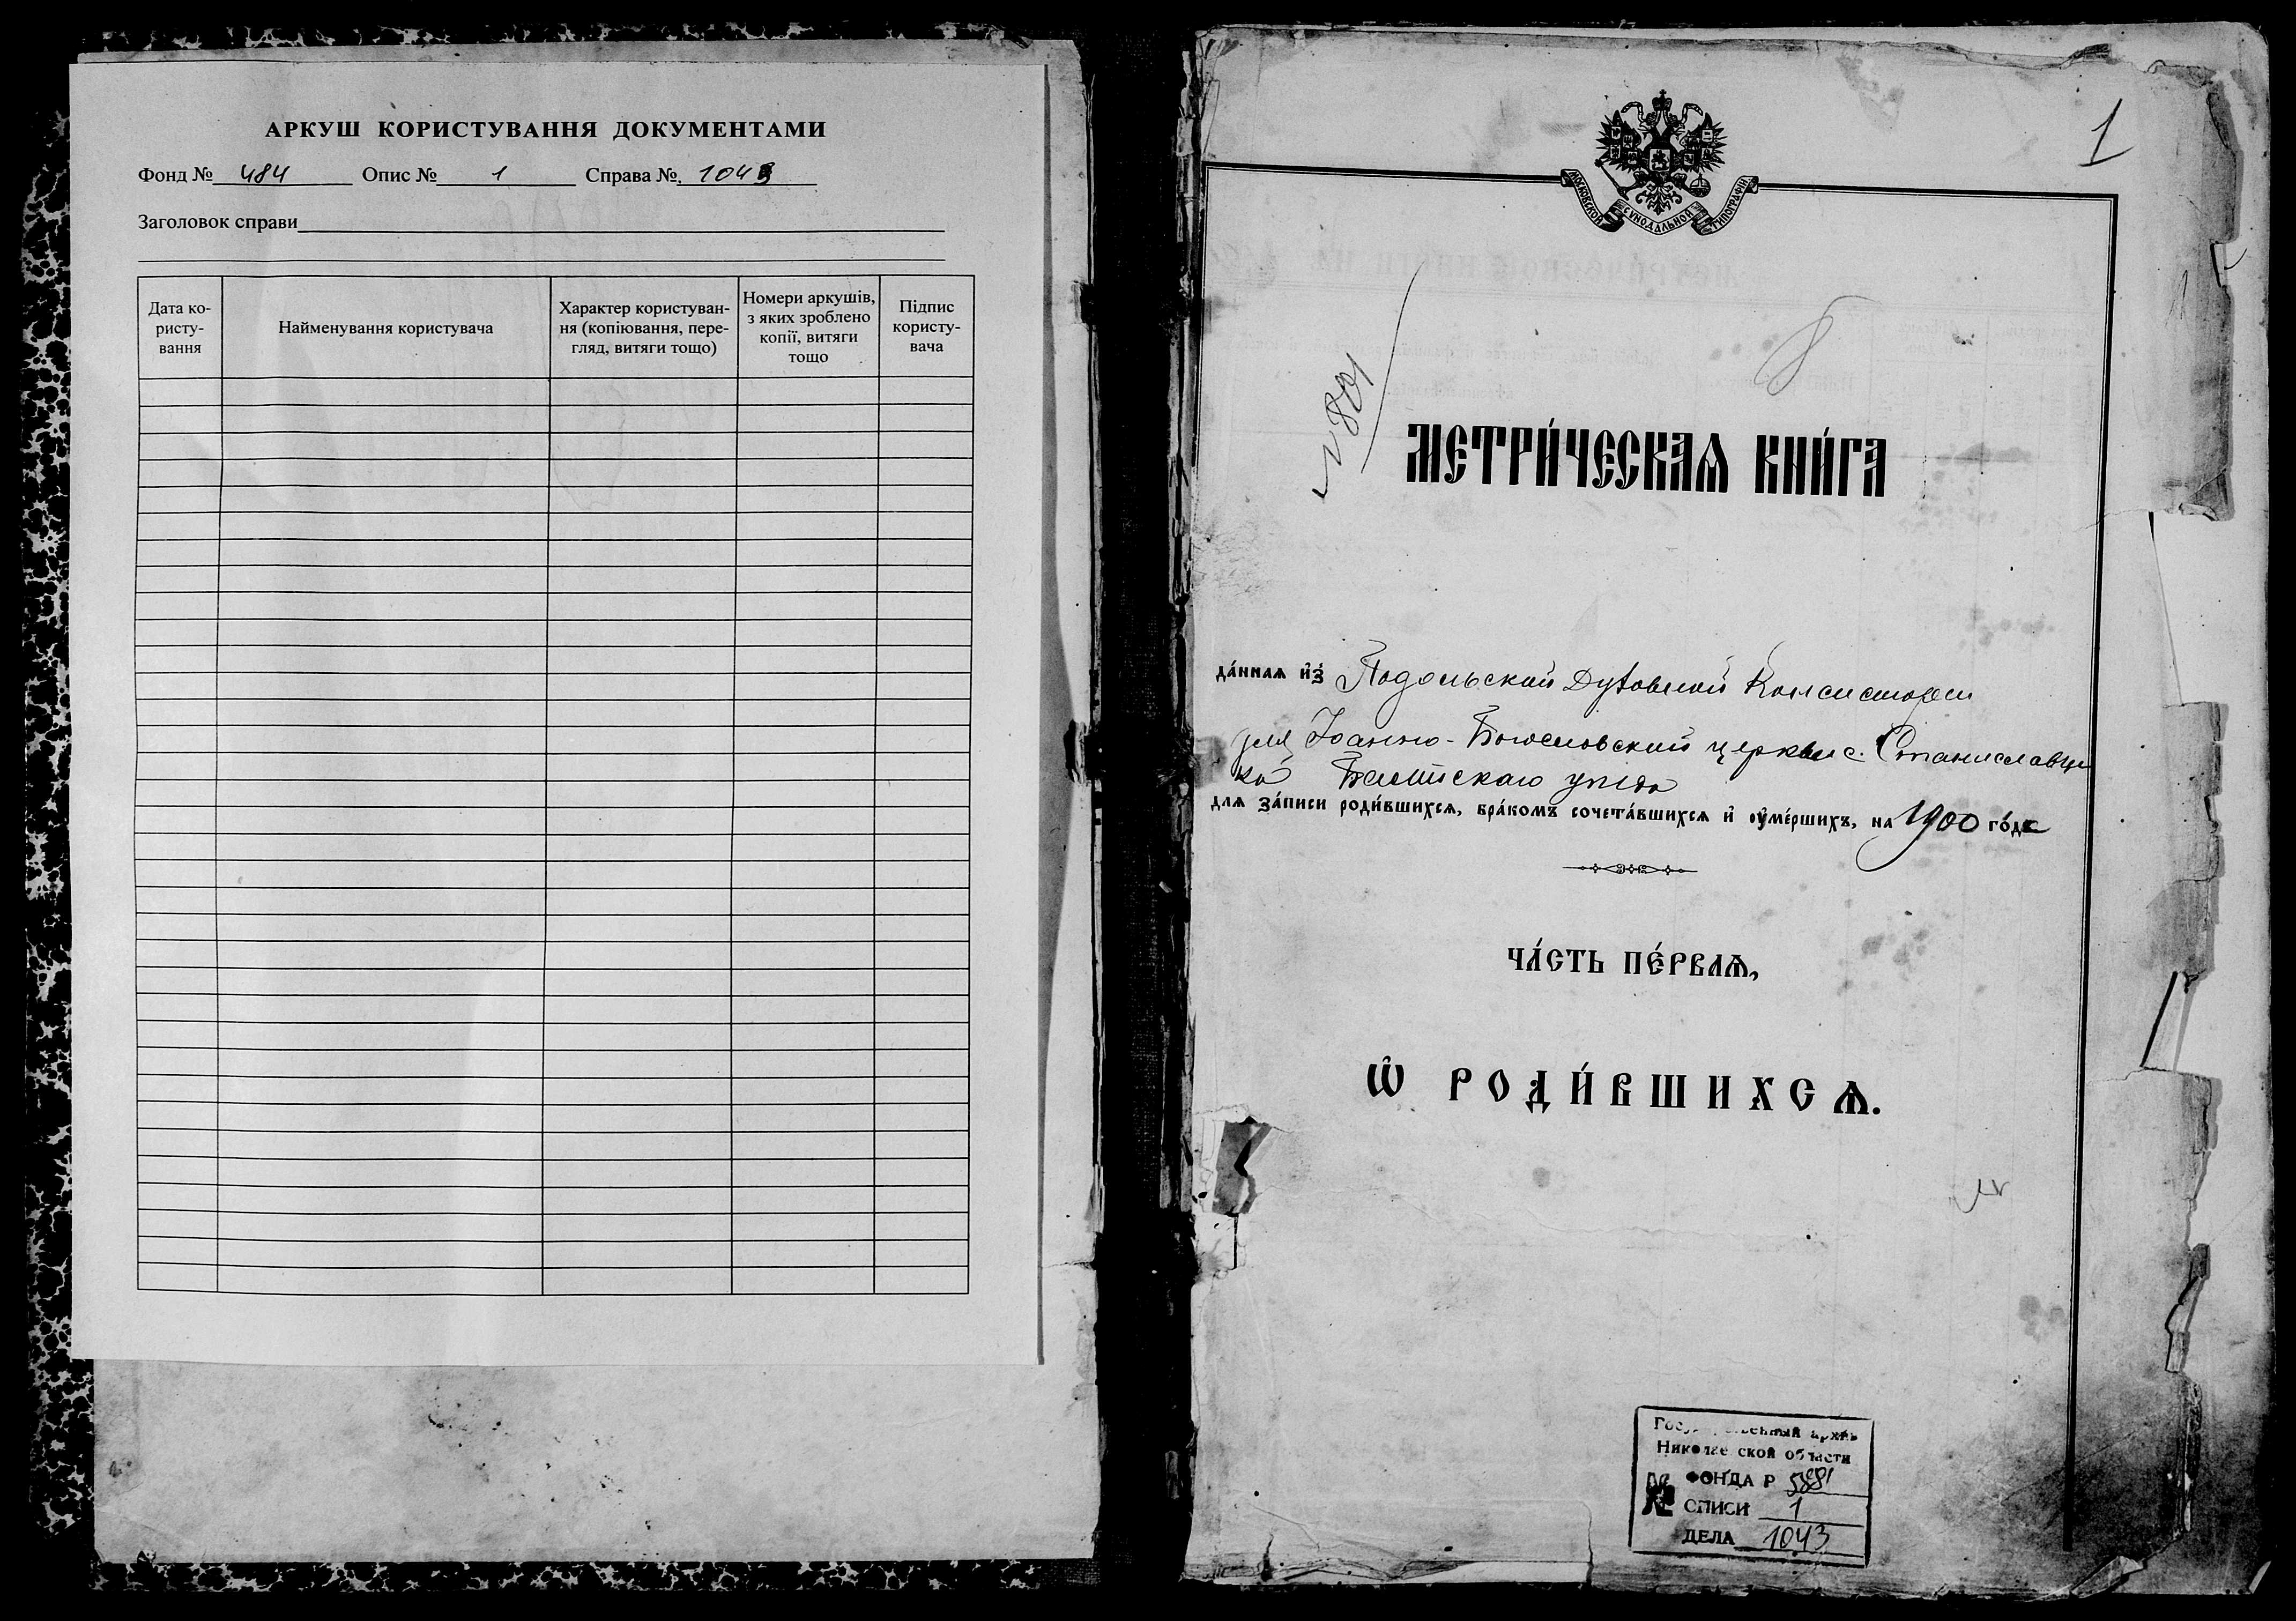 АРКУШ КОРИСТУВАННЯ ДОКУМЕНТАМИ
Фонд № 484 Опис № 1 Справа № 1043
Заголовок справи
Дата ко-
ристу-
вання
Найменування користувача
Характер користуван-
ня (копіювання, пере-
гляд, витяги тощо)
Номери аркушів,
з яких зроблено
копії, витяги
тощо
Підпис
користу-
вача
1
МОСКОВСКОЙ СѴНОДАЛЬНОЙ ТИПОГРАФІИ
№ 801
МЕТРИ́ЧЕСКАѦ КНИ́ГА
да́ннаѧ и҆з̾ Подольской Духовной Консистории
для Іоанно-Богословской церкви с. Станиславчи
ка Балтскаго уѣзда
для за́писи роди́вшихсѧ, бра́комъ сочета́вшихсѧ и҆ оу҆ме́ршихъ, на 1900 го́дъ
ЧА́СТЬ ПЕ́РВАѦ,
Ѽ РОДИ́ВШИХСѦ.
Государственный архив
Николаевской области
№ ФОНДА Р 5881
ОПИСИ 1
ДЕЛА 1043